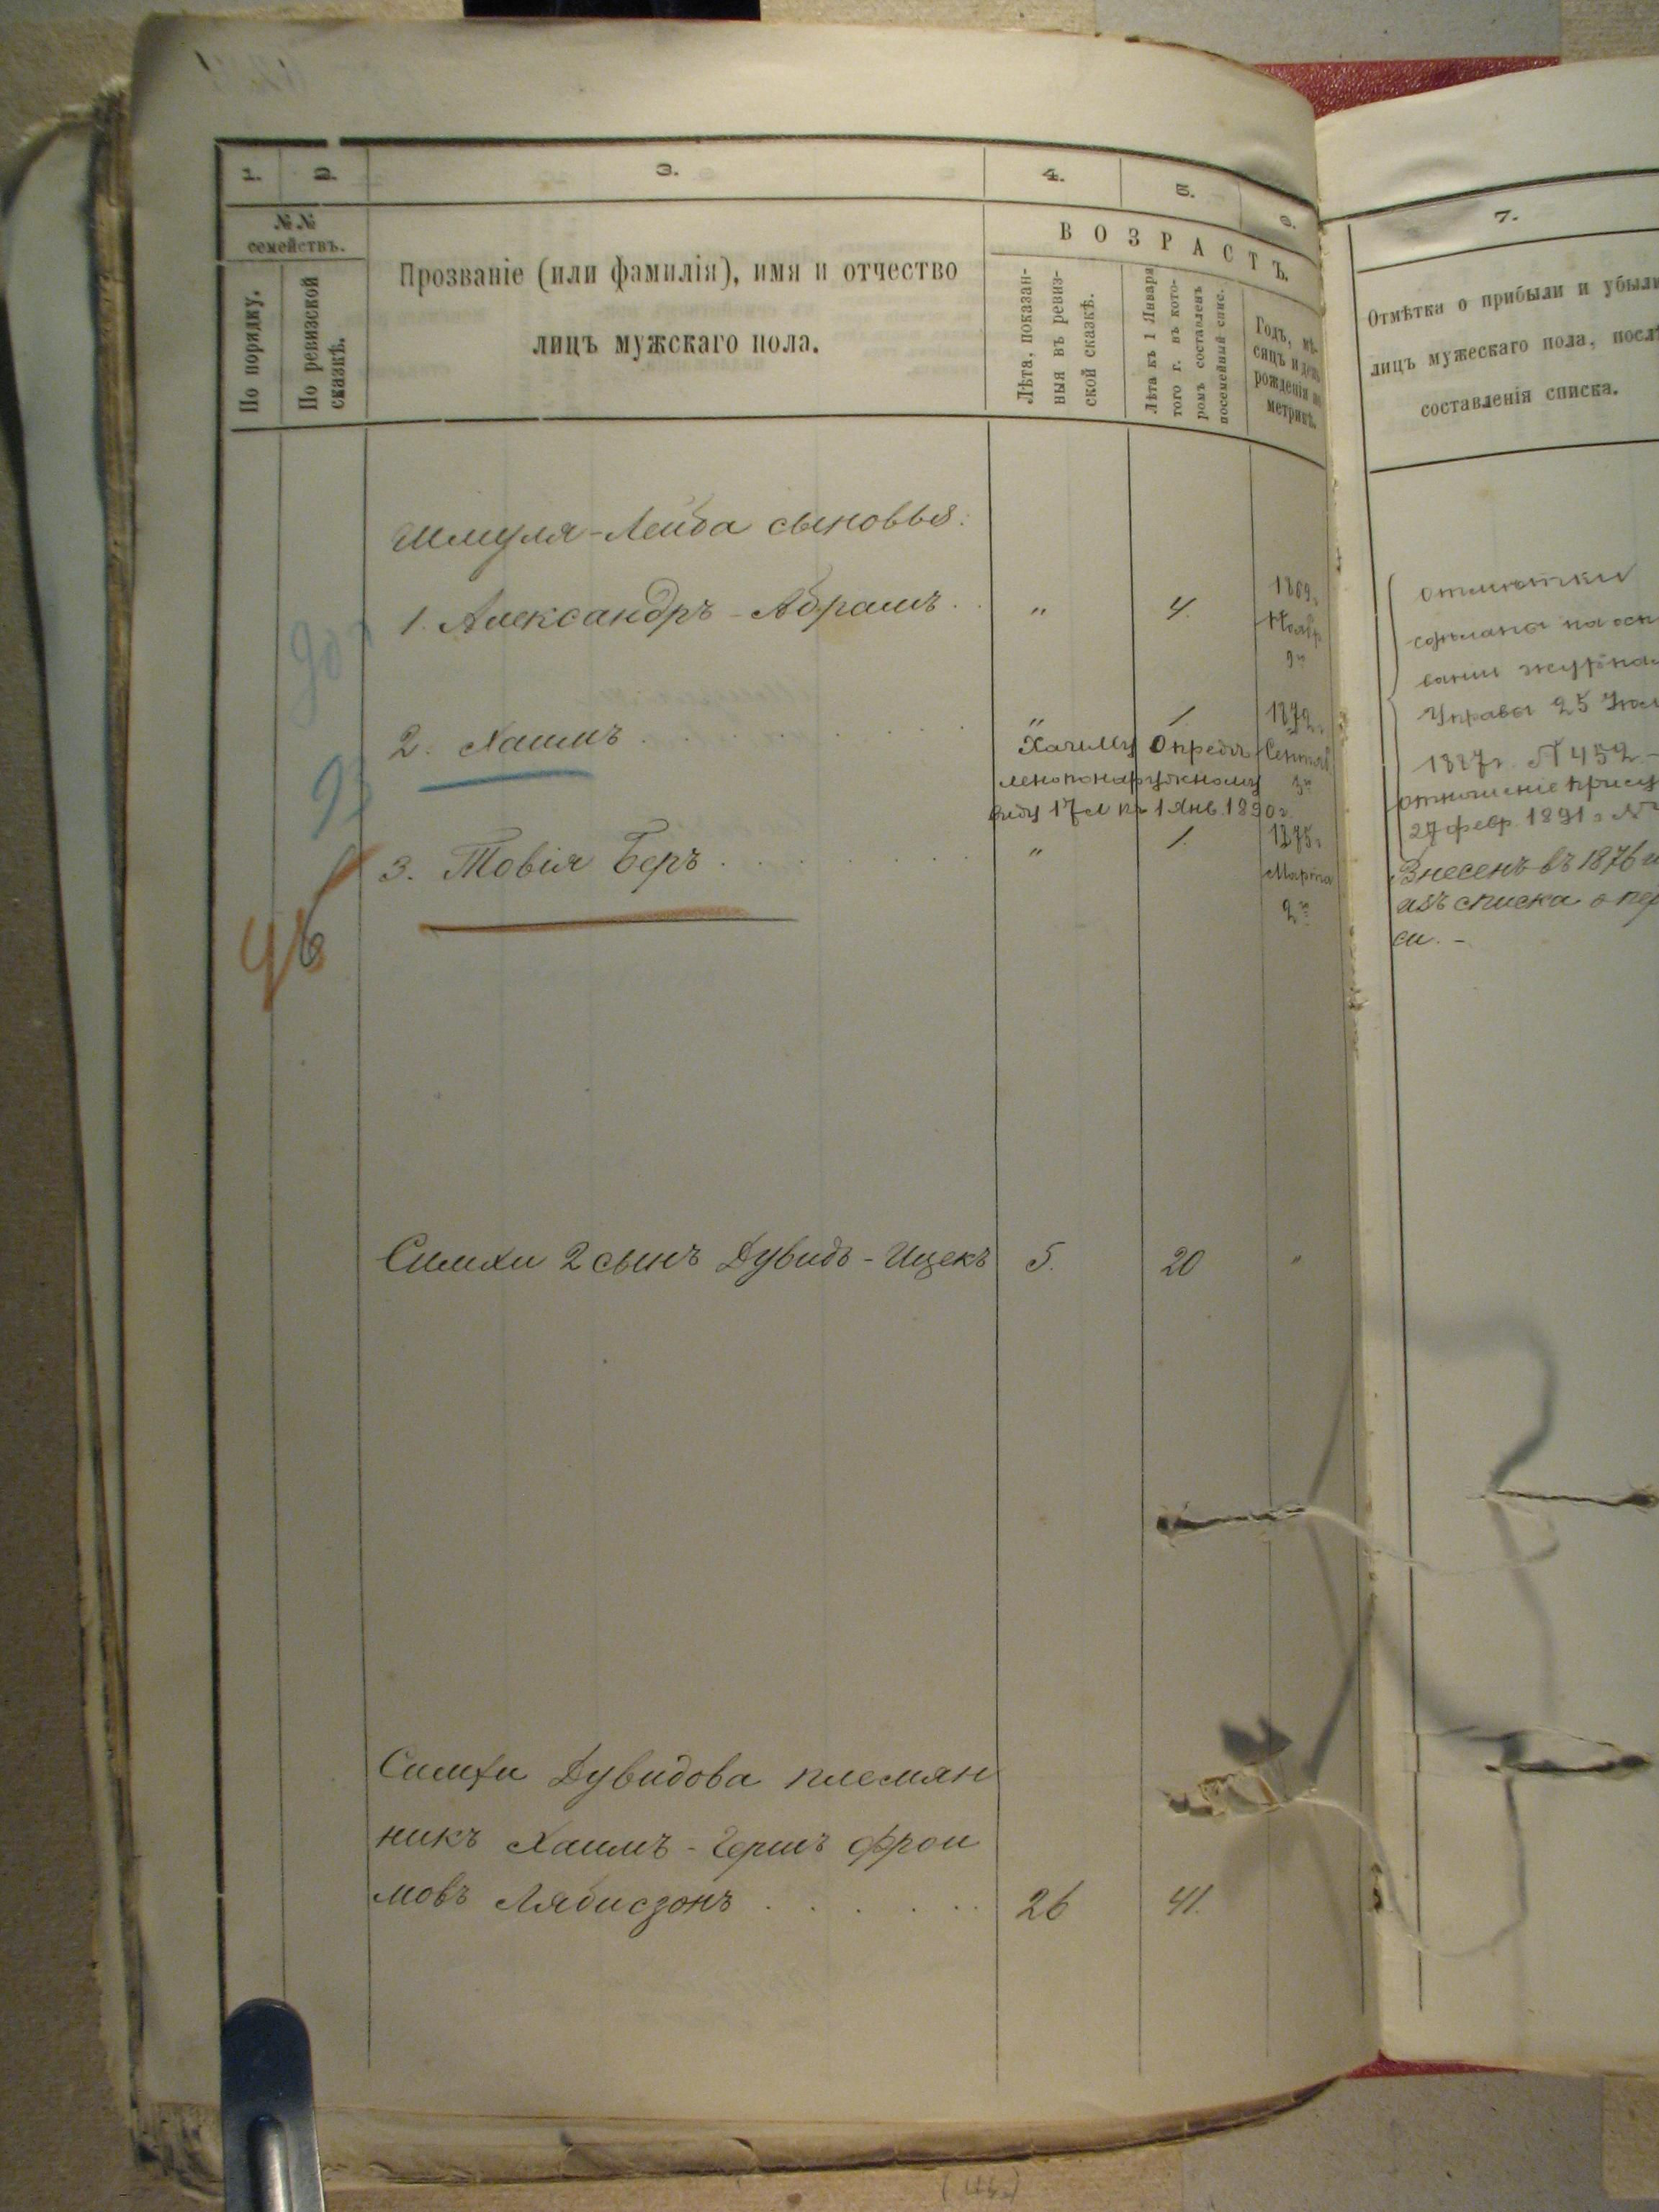 1.
2.
3.
4.
5.
6.
7.
№№
семействъ.
По порядку.
По ревизской
сказкѣ.
Прозваніе (или фамилія), имя и отчество
лицъ мужскаго пола.
ВОЗРАСТЪ.
Лѣта, показан-
ныя въ ревиз-
ской сказкѣ.
Лѣта къ 1 Января
того г. въ кото-
ромъ составленъ
посемейный спис.
Годъ, мѣ-
сяцъ и день
рожденія по
метрикѣ.
Отмѣтка о прибыли и убыли
лицъ мужескаго пола, послѣ
составленія списка.
Шмуля-Лейба сыновья:
1. Александръ-Абрамъ . . " 4. 1869г.
Ноябр.
9го
2. Хаимъ . . . . . . " 1. 1872г.
Хаиму опредѣ- Сентяб.
лено по наружному 3го
виду 17 л къ 1 Янв. 1890 г.
3. Товія Беръ . . . . . . " 1. 1875г.
Марта
2го
93
96
отмѣтки
сдѣланы на осн
ваніи журнал
Управы 25 Юл
1887г. № 452 -
отношеніе присут
27 февр. 1891 г. №
Внесенъ въ 1876 г.
изъ списка о пер
си. -
Симхи 2 сынъ Дувидъ-Ицекъ 5. 20 "
Симхи Дувидова племян
никъ Хаимъ-Гершъ Фрои
мовъ Лябисзонъ . . . . . . 26 41.